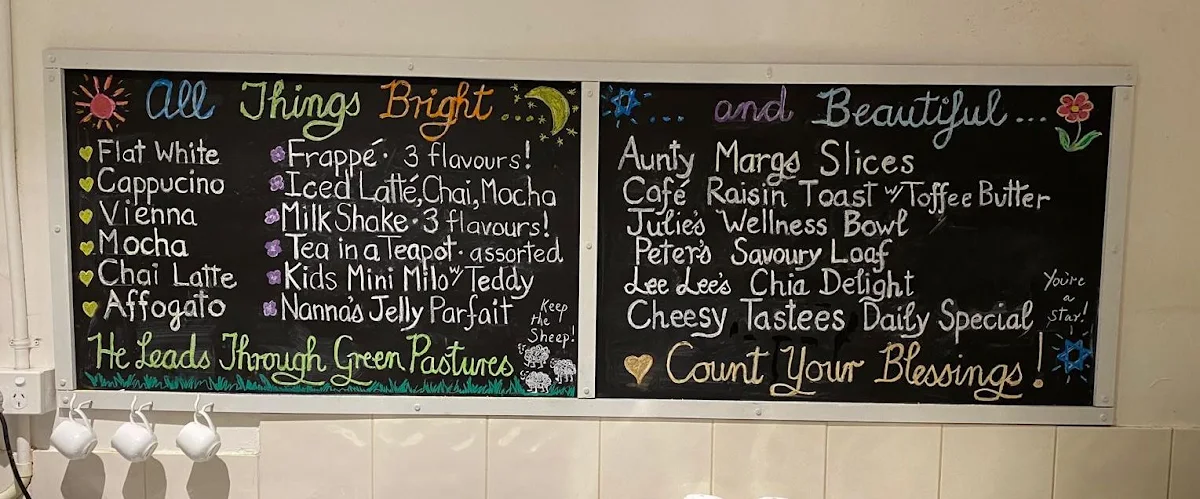 All Things Bright...
Flat White
Cappucino
Vienna
Mocha
Chai Latte
Affogato
Frappé · 3 flavours!
Iced Latté, Chai, Mocha
Milk Shake · 3 flavours!
Tea in a Teapot · assorted
Kids Mini Milo w/ Teddy
Nanna's Jelly Parfait
Keep
the
Sheep!
He Leads Through Green Pastures
... and Beautiful...
Aunty Margs Slices
Café Raisin Toast w/ Toffee Butter
Julie's Wellness Bowl
Peter's Savoury Loaf
Lee Lee's Chia Delight
Cheesy Tastees Daily Special
You're
a
star!
Count Your Blessings!